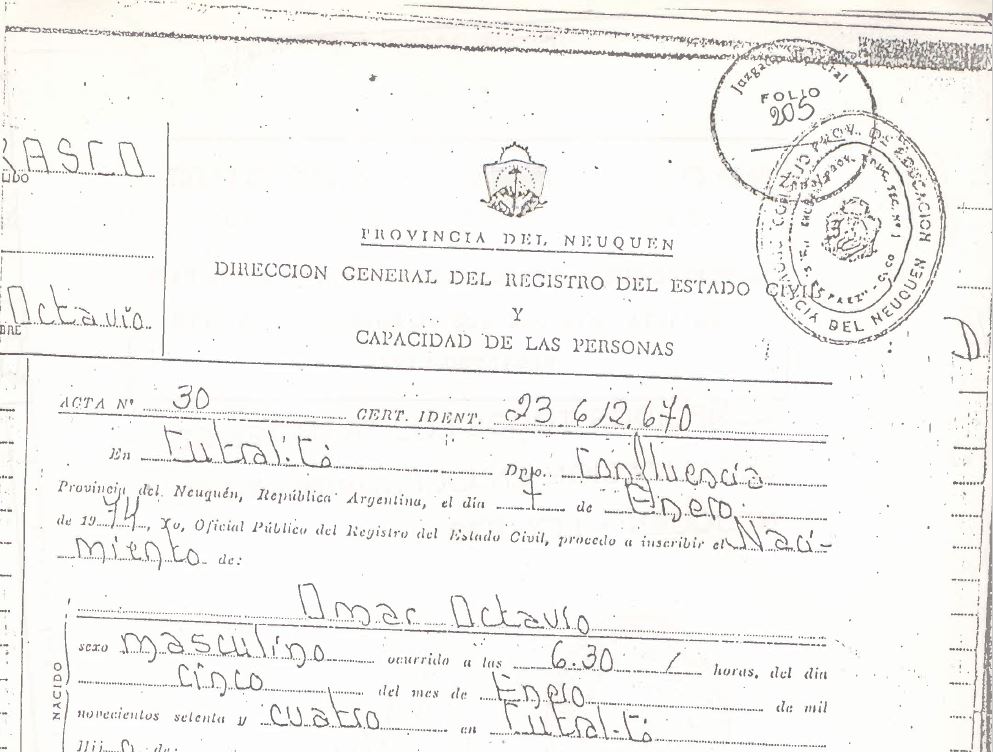 Juzgado Federal
FOLIO
205
CONSEJO PROV. DE EDUCACION
PROVINCIA DEL NEUQUEN
RASCO
LIDO
Octavio
BRE
PROVINCIA DEL NEUQUEN
DIRECCION GENERAL DEL REGISTRO DEL ESTADO CIVIL
Y
CAPACIDAD DE LAS PERSONAS
ACTA Nº 30 CERT. IDENT. 23.612.670
En Cutral-Có Dpto. Confluencia
Provincia del Neuquén, República Argentina, el día 7 de Enero
de 1974, Yo, Oficial Público del Registro del Estado Civil, procedo a inscribir el Naci-
miento de:
Omar Octavio
sexo masculino ocurrido a las 6.30 / horas, del día
cinco del mes de Enero de mil
novecientos setenta y cuatro en Cutral-Có
Hijo de:
NACIDO